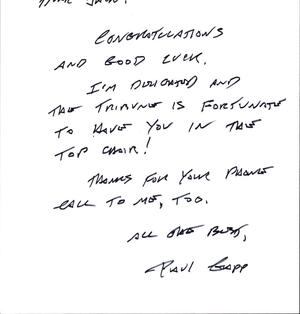 CONGRATULATIONS
AND GOOD LUCK.
I'M DELIGHTED AND
THE TRIBUNE IS FORTUNATE
TO HAVE YOU IN THE
TOP CHAIR!
THANKS FOR YOUR PHONE
CALL TO ME, TOO.
ALL THE BEST,
PAUL GAPP